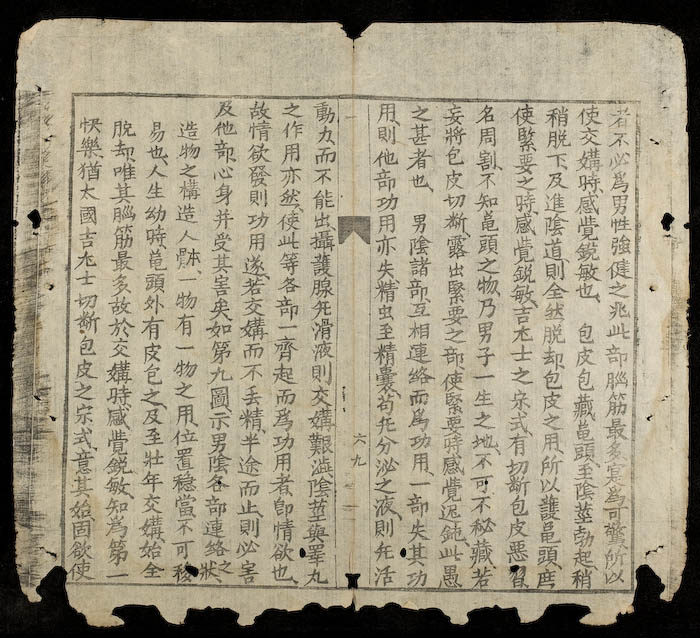 者不必爲男性強健之兆此部腦筋最多寔爲可驚所以
使交媾時感覺銳敏也 包皮包藏龜頭至陰莖勃起稍
稍脫下及進陰道則全然脫却包皮之用所以護龜頭庶
使緊要之時感覺銳敏吉尤士之宗式有切斷包皮惡習
名周割不知龜頭之物乃男子一生之地不可不秘藏若
妄將包皮切斷露出緊要之部使緊要時感覺迟鈍此愚
之甚者也 男陰諸部互相連絡而爲功用一部失其功
用則他部功用亦失精虫至精囊苟无分泌之液則无活
六九
動力而不能出攝護腺无滑液則交媾艱澁陰莖與睪丸
之作用亦然使此等各部一齊起而爲功用者卽情欲也
故情欲發則功用遂若交媾而不丢精半途而止則必害
及他部心身并受其害矣如第九圖示男陰各部連絡之狀
造物之構造人體一物有一物之用位置穩當不可移
易也人生幼時龜頭外有皮包之及至壯年交媾始全
脫却唯其腦筋最多故於交媾時感覺銳敏知爲第一
快樂猶太國吉尤士切斷包皮之宗式意其始固欲使